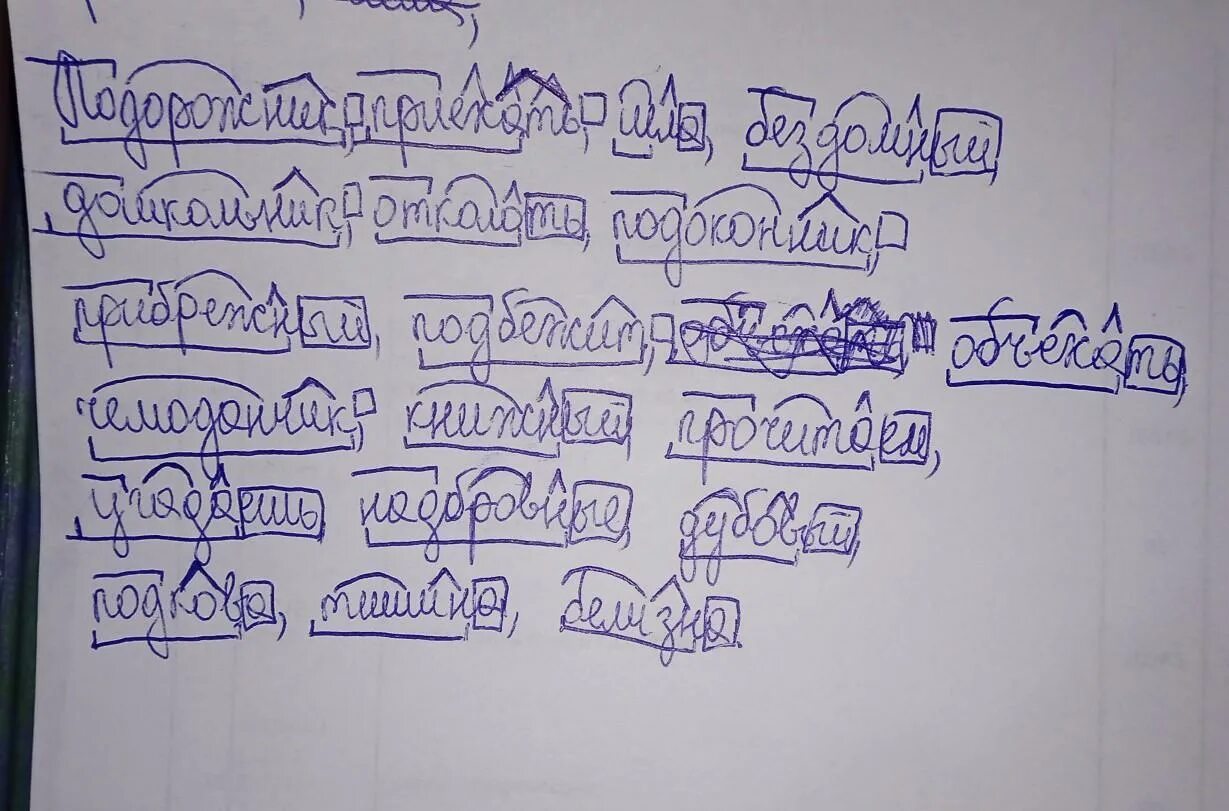 Подорожник, приехать, шла, бездомный
дошкольник, отколоть, подоконник,
прибрежный, подбежит, объехать,
чемоданчик, книжный прочитаем,
угадаешь надбровные, дубовый,
подкова, тишина, белизна.